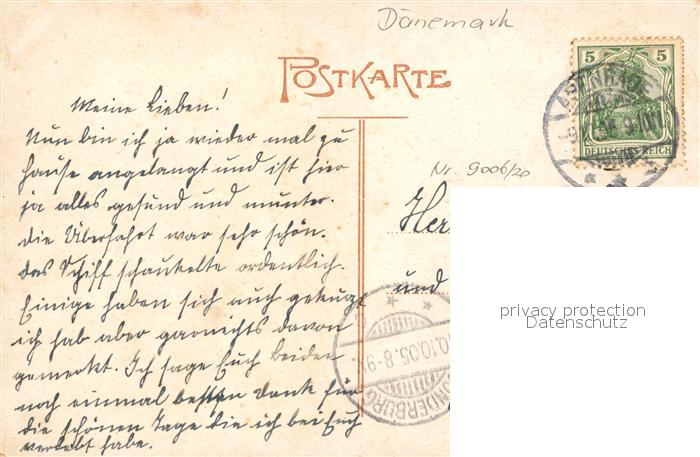 Dänemark
POSTKARTE
5 5
DEUTSCHES REICH
APENRADE
Nr. 9006/20
Meine Lieben!
Nun bin ich ja wieder mal zu
Hause angelangt und ist hier
ja alles gesund und munter.
Die Überfahrt war sehr schön.
Das Schiff schaukelte ordentlich.
Einige haben sich auch
ich hab aber garnichts davon
gemerkt. Ich sage Euch beiden
noch einmal besten Dank für
die schönen Tage die ich bei Euch
verlebt habe.
Her
und
10.10.05.8-9
SONDERBURG
privacy protection
Datenschutz